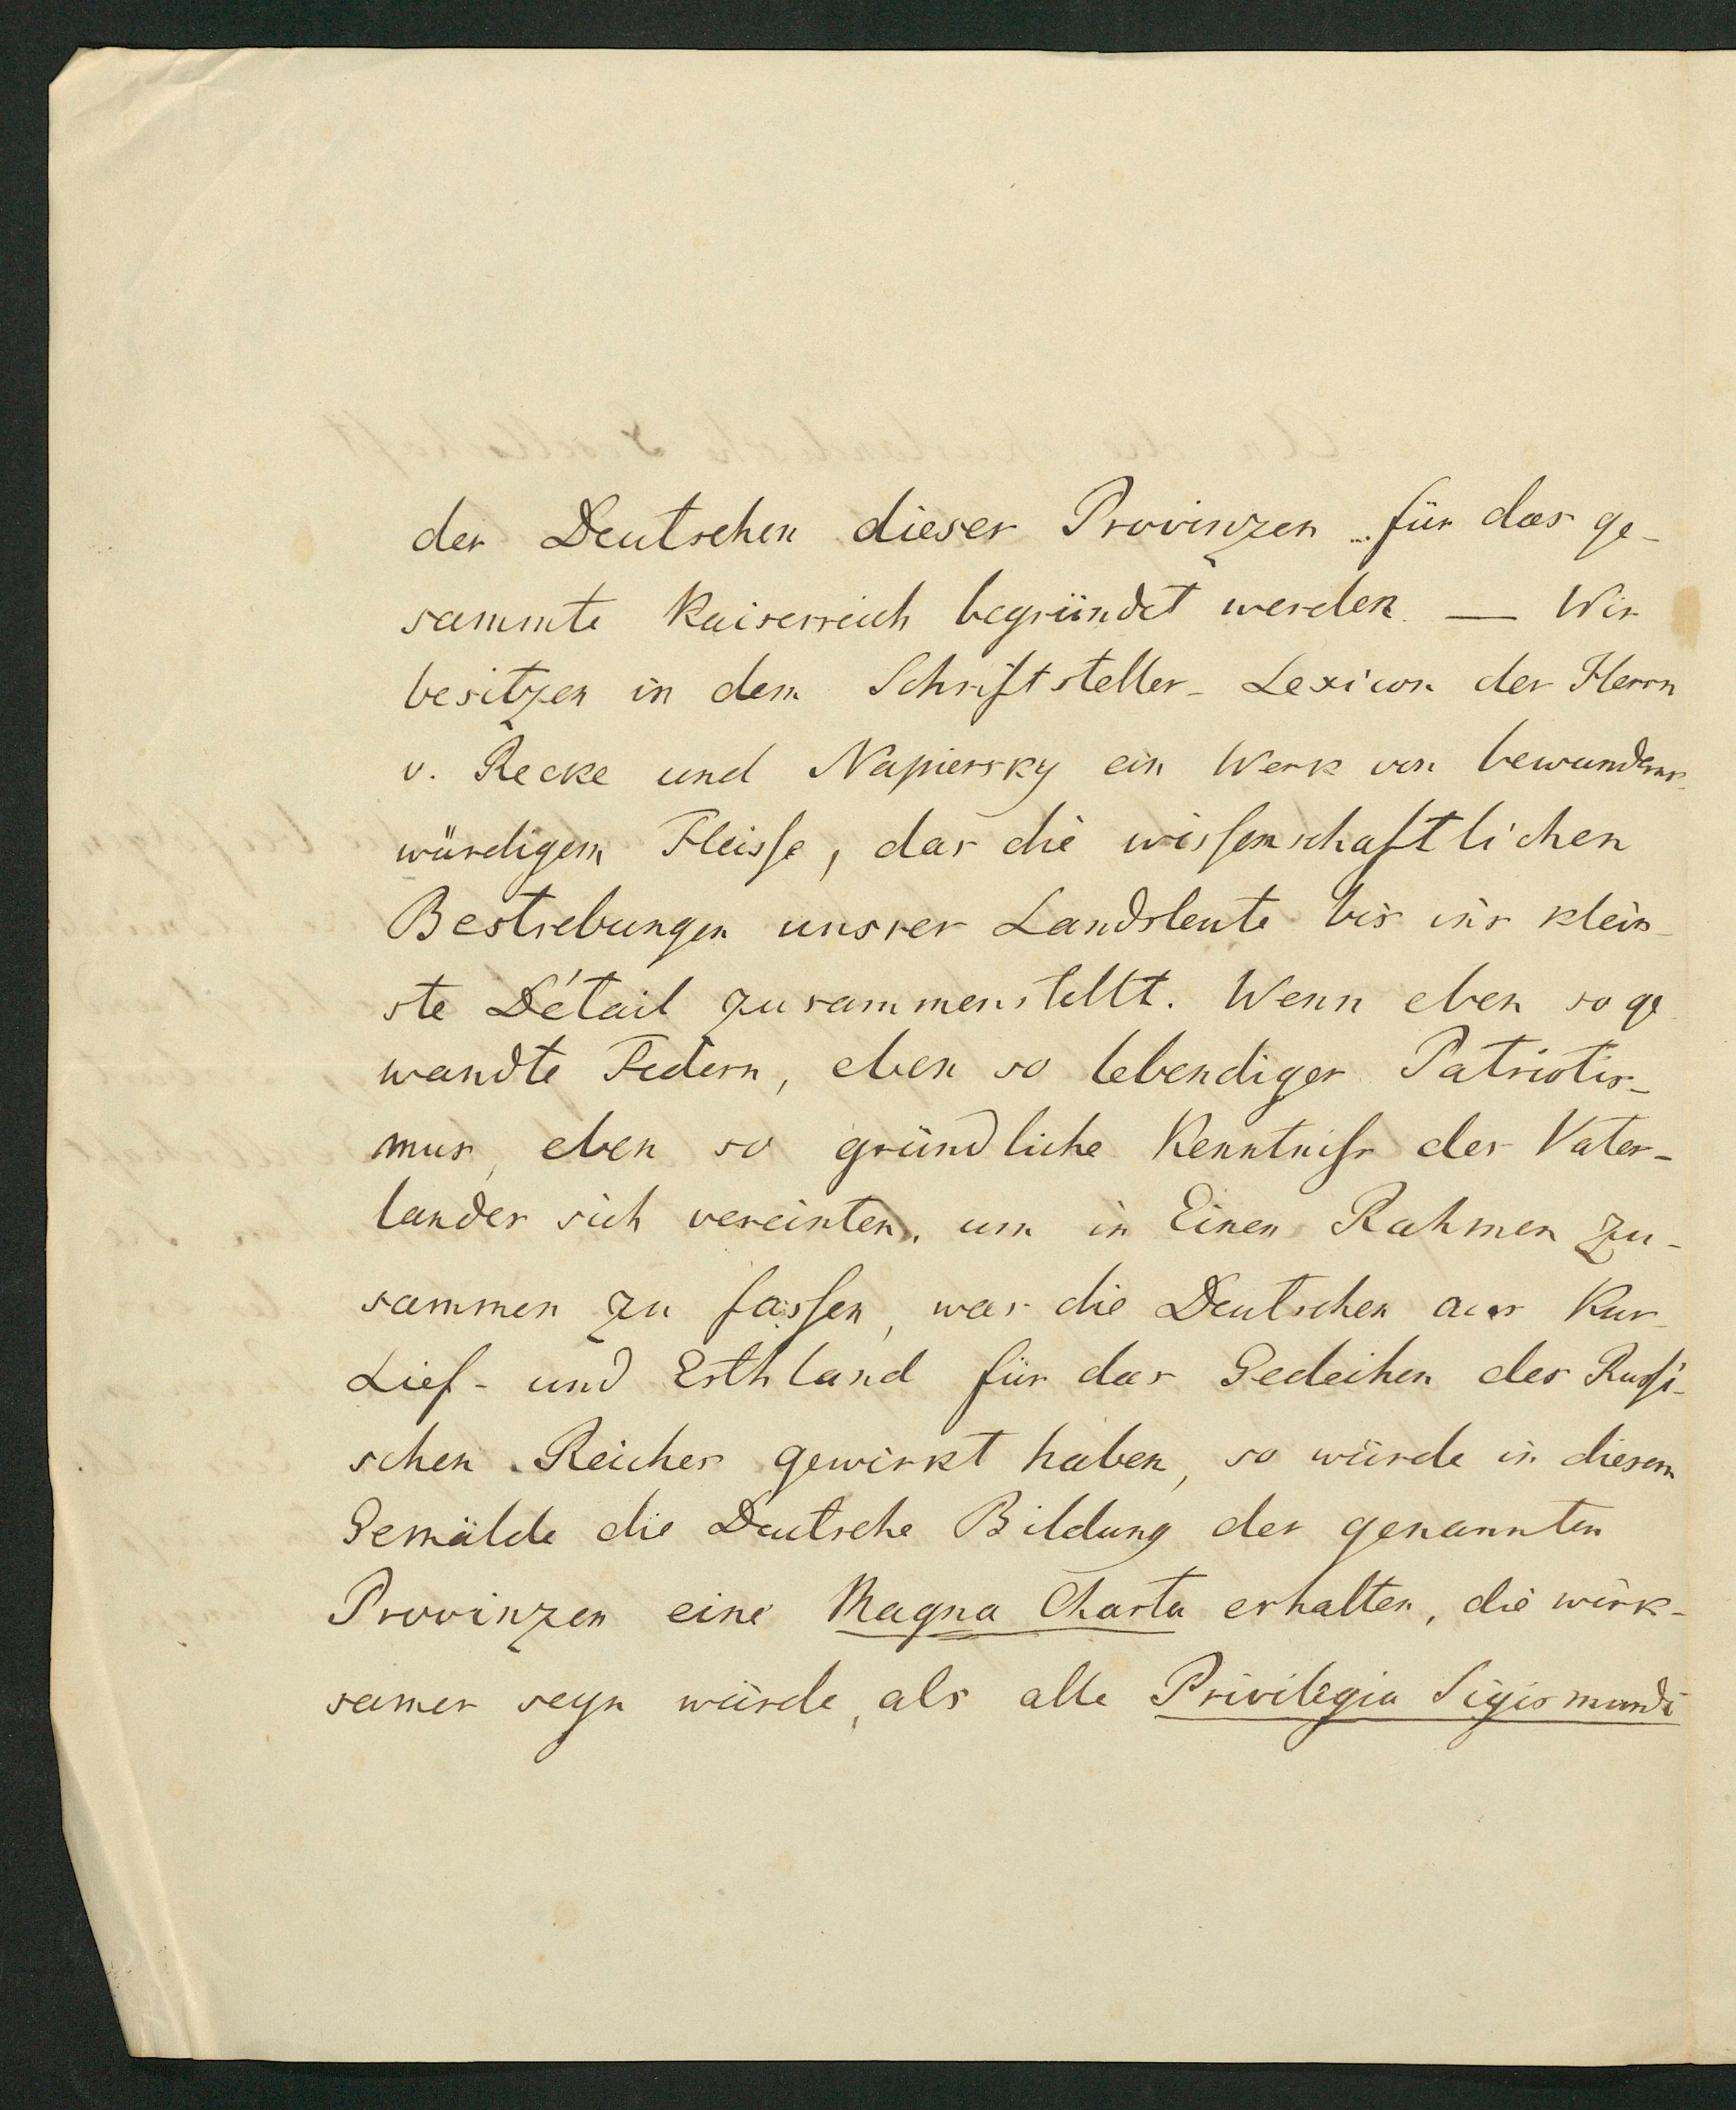 der Deutschen dieser Provinzen für das ge-
sammte Kaiserreich begründet werden. — Wir
besitzen in dem Schriftsteller-Lexicon der Herrn
v. Recke und Napiersky ein Werk von bewunderns-
würdigem Fleisse, das die wissenschaftlichen
Bestrebungen unsrer Landsleute bis in's klein-
ste Détail zusammenstellt. Wenn eben so ge
wandte Federn, eben so lebendiger Patriotis-
mus, eben so gründliche Kenntniss des Vater-
landes sich vereinten, um in Einen Rahmen zu-
sammen zu fassen, was die Deutschen aus Kur-
Lief- und Esthland für das Gedeihen des Russi-
schen Reiches gewirkt haben, so würde in diesem
Gemälde die Deutsche Bildung der genannten
Provinzen eine Magna Charta erhalten, die wirk-
samer seyn würde, als alle Privilegia Sigismundi